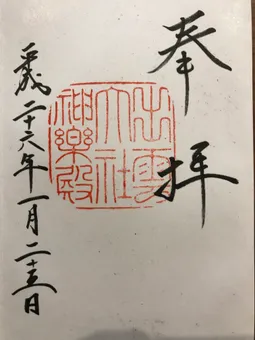 奉拝
出雲
大社
神樂殿
平成二十六年一月二十五日